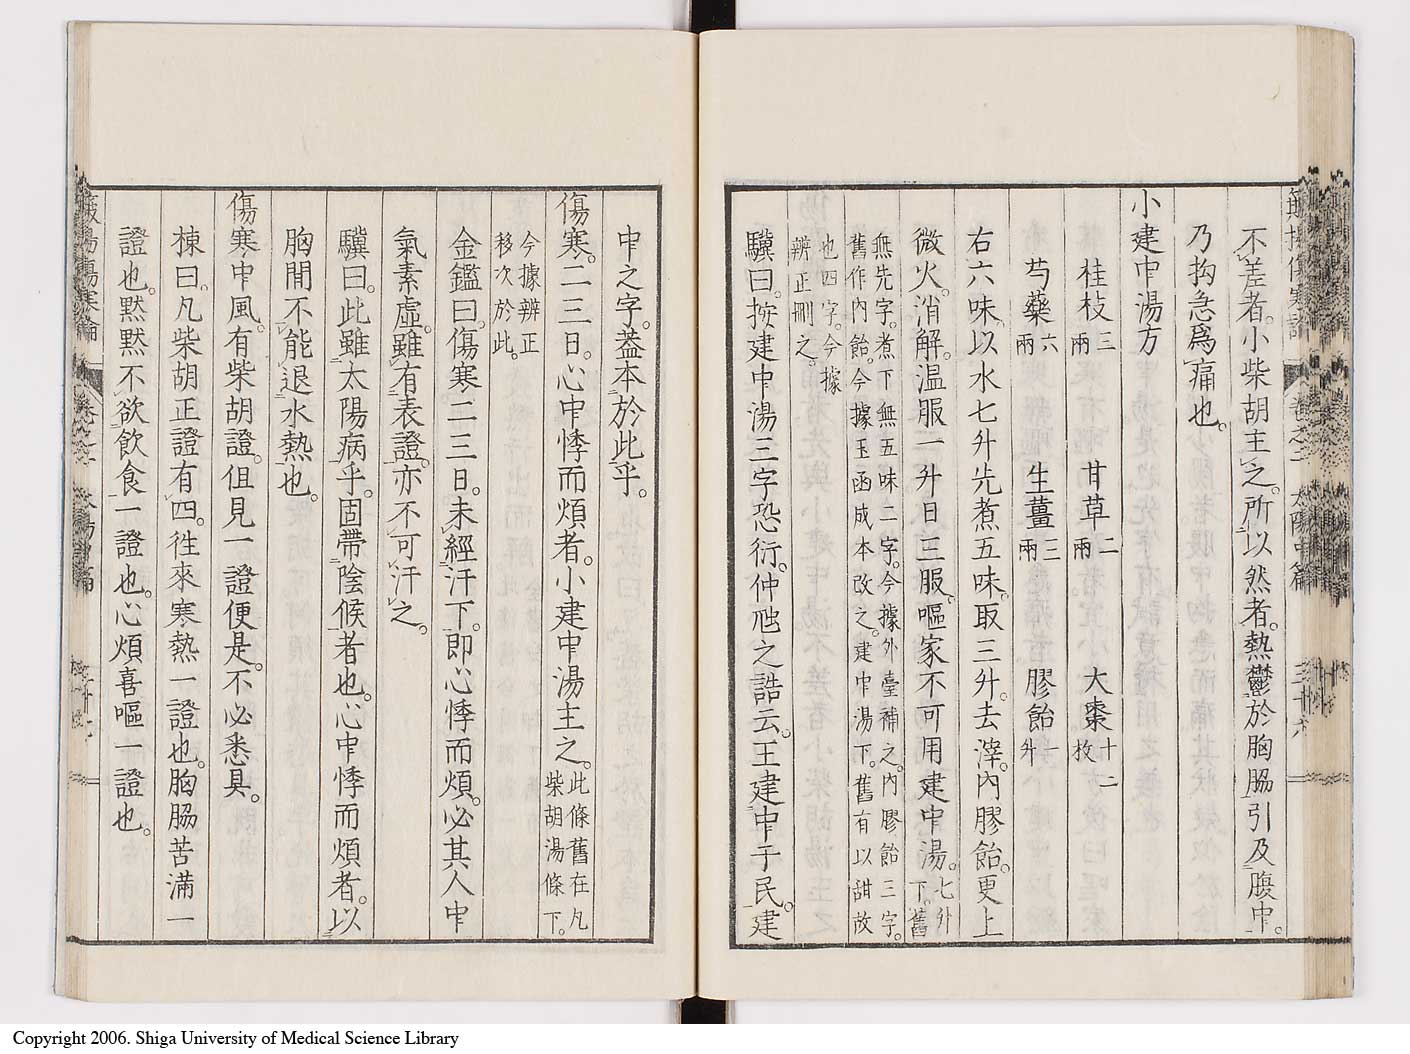 不差者。小柴胡主之。所以然者。熱鬱於胸脇引及腹中。
乃拘急爲痛也。
小建中湯方
桂枝三兩 甘草二兩 大棗十二枚
芍藥六兩 生薑三兩 膠飴一升
右六味以水七升先煮五味取三升。去滓。內膠飴。更上
微火。消解。温服一升日三服。嘔家不可用建中湯。七升下。舊
無先字。煮下無五味二字。今據外臺補之。內膠飴三字。
舊作內飴。今據玉函成本改之。建中湯下。舊有以甜故
也四字。今據
辨正刪之。
驥曰。按建中湯三字恐衍。仲虺之誥云。王建中于民。建
中之字。蓋本於此乎。
傷寒。二三日。心中悸而煩者。小建中湯主之。此條舊在凡
柴胡湯條下。
今據辨正
移次於此。
金鑑曰。傷寒二三日。未經汗下。卽心悸而煩。必其人中
氣素虛。雖有表證。亦不可汗之。
驥曰。此雖太陽病乎。固帶陰候者也。心中悸而煩者。以
胸間不能退水熱也。
傷寒中風。有柴胡證。但見一證便是。不必悉具。
棟曰。凡柴胡正證有四。往來寒熱一證也。胸脇苦滿一
證也。默默不欲飲食一證也。心煩喜嘔一證也。
太陽中篇
三十六